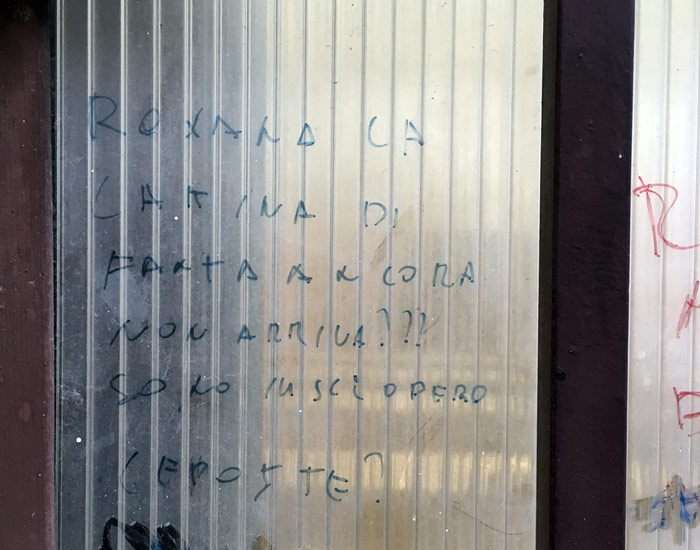 ROXANA LA
CARTINA DI
FANTA ANCORA
NON ARRIVA???
SONO IN SCIOPERO
LE POSTE?
R